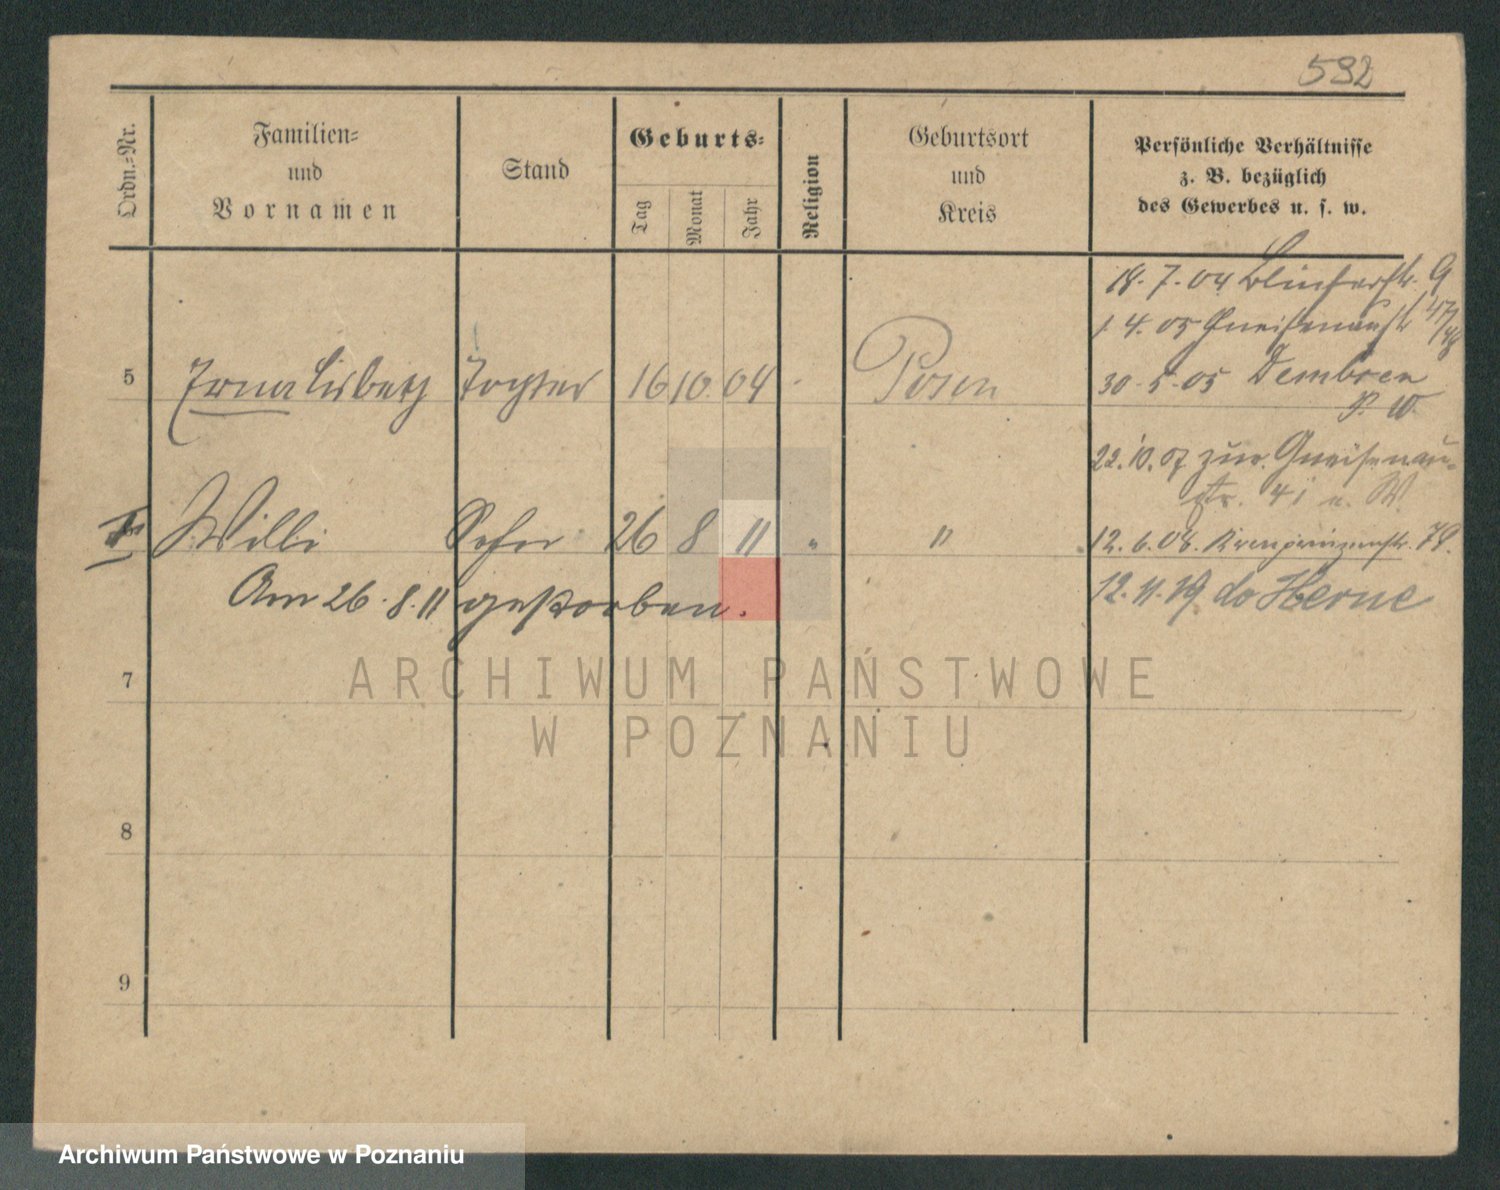 592
Ordn.-Nr.
Familien-
und
Vornamen
Stand
Geburts-
Tag
Monat
Jahr
Religion
Geburtsort
und
Kreis
Persönliche Verhältnisse
z. B. bezüglich
des Gewerbes u. s. w.
18. 7. 04 9
1. 4. 05 Gneisenaustr 47/48
5 Irma Lisbeth Tochter 16 10 04 Posen
30. 5. 05 Dembsen
P. W.
22. 10. 07 zur. Gneisenau-
str. 41 u. W.
Willi Sohn 26 8 11 " "
12. 6. 08. Kronprinzenstr. 79.
Am 26. 8. 11 gestorben.
12. 11. 19 do Herne
7
8
9
ARCHIWUM PAŃSTWOWE
W POZNANIU
Archiwum Państwowe w Poznaniu